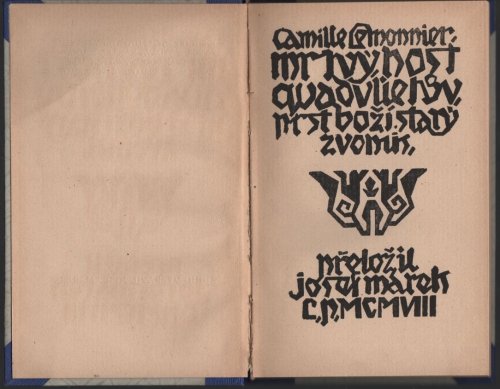 Camille Lemonnier.
mrtvý, host
quadvlietův,
prst boží, starý
zvoník,
přeložil
josef marek
L.P. MCMVIII